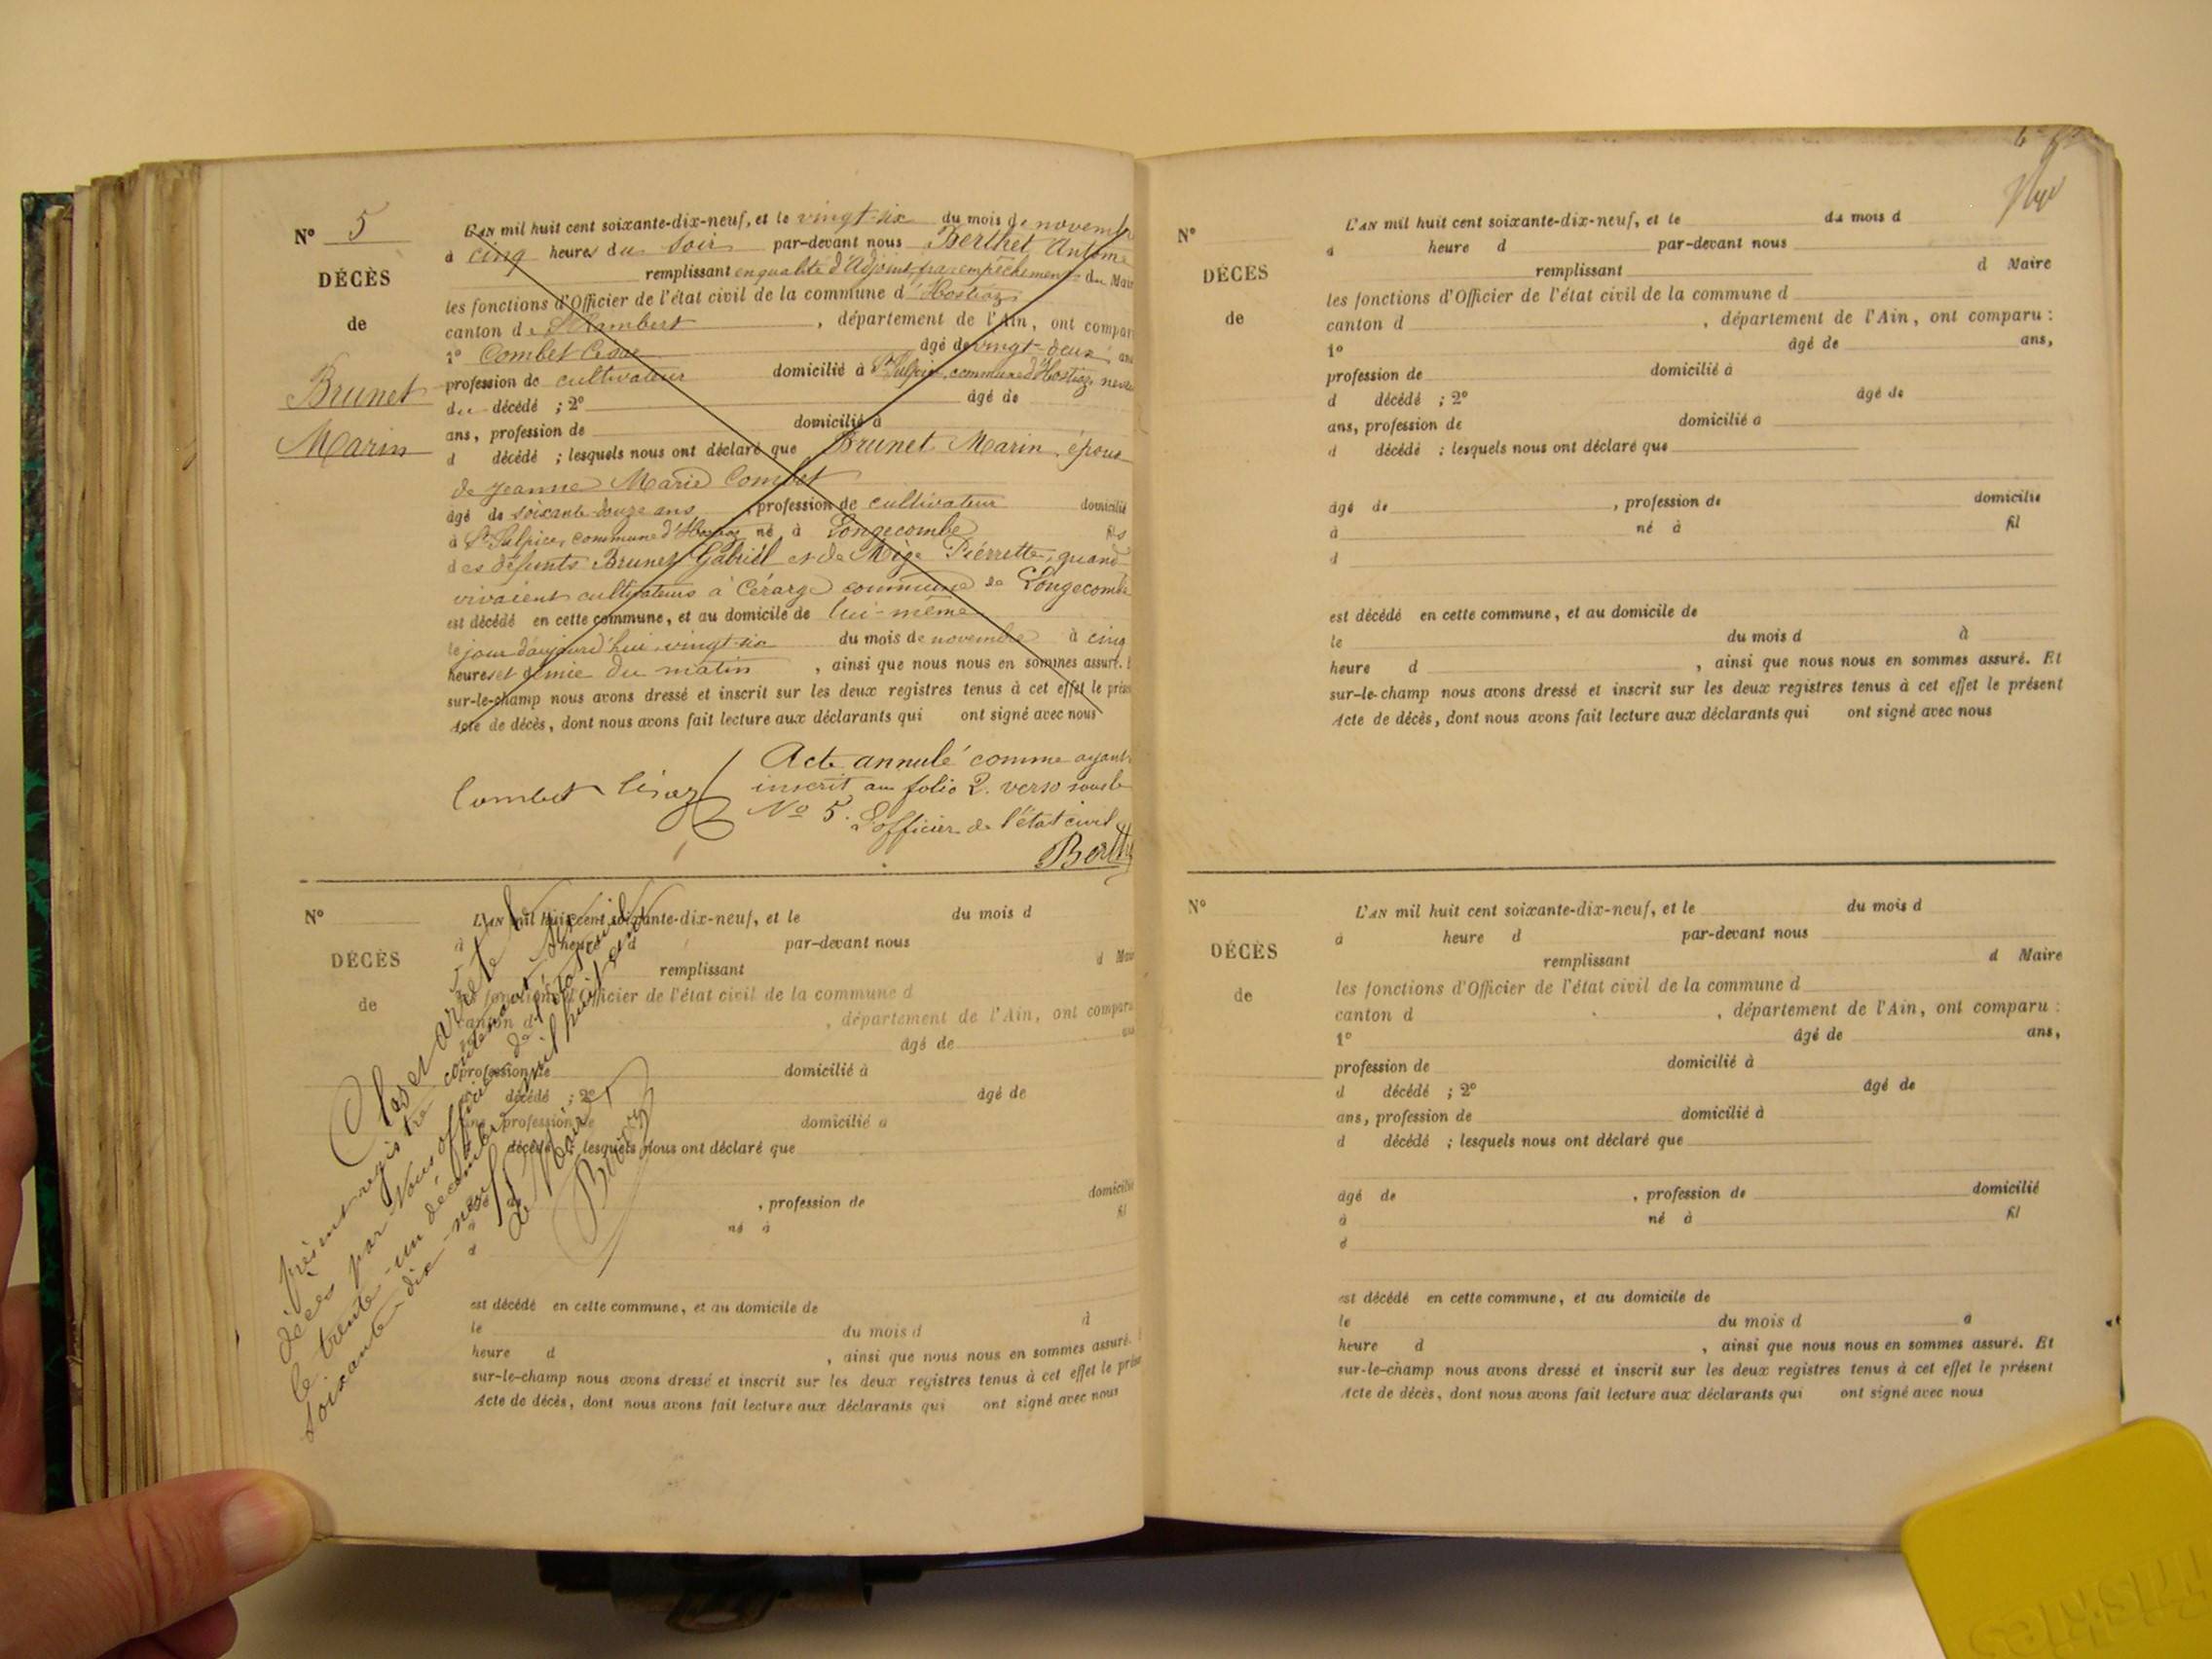 N° 5
DÉCÈS
de
Brunet
Marin
L'AN mil huit cent soixante-dix-neuf, et le vingt-six du mois de novembre
à cinq heures du soir par-devant nous Berthet Antoine
remplissant en qualité d'Adjoint, par empêchement du Mair
les fonctions d'Officier de l'état civil de la commune d'Hostiaz
canton de St Rambert, département de l'Ain, ont compar
1° Combet César âgé de vingt-deux ans
profession de cultivateur domicilié à St Sulpice, commune d'Hostiaz, neveu
du décédé ; 2° âgé de
ans, profession de domicilié à
d décédé ; lesquels nous ont déclaré que Brunet Marin, époux
de Jeanne Marie Combet
âgé de soixante-douze ans, profession de cultivateur domicilié
à St Sulpice, commune d'Hostiaz né à Longecombe fils
des défunts Brunet Gabriel et de Mège Pierrette, quand
vivaient cultivateurs à Cérarge commune de Longecombe
est décédé en cette commune, et au domicile de lui-même
le jour d'aujourd'hui vingt-six du mois de novembre à cinq
heures et demie du matin, ainsi que nous nous en sommes assuré. E
sur-le-champ nous avons dressé et inscrit sur les deux registres tenus à cet effet le prése
Acte de décès, dont nous avons fait lecture aux déclarants qui ont signé avec nous
Combet Cézar
Acte annulé comme ayant
inscrit au folio 2. verso sous le
No 5. L'officier de l'état civil
Berth
N°
DÉCÈS
de
L'AN mil huit cent soixante-dix-neuf, et le du mois d
à heure d par-devant nous
remplissant d Mair
les fonctions d'Officier de l'état civil de la commune d
canton d, département de l'Ain, ont compar
âgé de ans
profession de domicilié à
d décédé ; 2° âgé de
ans, profession de domicilié à
d décédé ; lesquels nous ont déclaré que
âgé de, profession de domicilié
à né à fil
d
est décédé en cette commune, et au domicile de
le du mois d à
heure d, ainsi que nous nous en sommes assuré. E
sur-le-champ nous avons dressé et inscrit sur les deux registres tenus à cet effet le prése
Acte de décès, dont nous avons fait lecture aux déclarants qui ont signé avec nous
Clos et arrêté le
présent registre contenant
décès par Nous officier de l'état civil
le trente-un décembre mil huit cent
soixante-dix-neuf
Le Maire
N°
DÉCÈS
de
L'AN mil huit cent soixante-dix-neuf, et le du mois d
à heure d par-devant nous
remplissant d Maire
les fonctions d'Officier de l'état civil de la commune d
canton d, département de l'Ain, ont comparu :
1° âgé de ans,
profession de domicilié à
d décédé ; 2° âgé de
ans, profession de domicilié à
d décédé ; lesquels nous ont déclaré que
âgé de, profession de domicilié
à né à fil
d
est décédé en cette commune, et au domicile de
le du mois d à
heure d, ainsi que nous nous en sommes assuré. Et
sur-le-champ nous avons dressé et inscrit sur les deux registres tenus à cet effet le présent
Acte de décès, dont nous avons fait lecture aux déclarants qui ont signé avec nous
N°
DÉCÈS
de
L'AN mil huit cent soixante-dix-neuf, et le du mois d
à heure d par-devant nous
remplissant d Maire
les fonctions d'Officier de l'état civil de la commune d
canton d, département de l'Ain, ont comparu :
1° âgé de ans,
profession de domicilié à
d décédé ; 2° âgé de
ans, profession de domicilié à
d décédé ; lesquels nous ont déclaré que
âgé de, profession de domicilié
à né à fil
d
est décédé en cette commune, et au domicile de
le du mois d à
heure d, ainsi que nous nous en sommes assuré. Et
sur-le-champ nous avons dressé et inscrit sur les deux registres tenus à cet effet le présent
Acte de décès, dont nous avons fait lecture aux déclarants qui ont signé avec nous